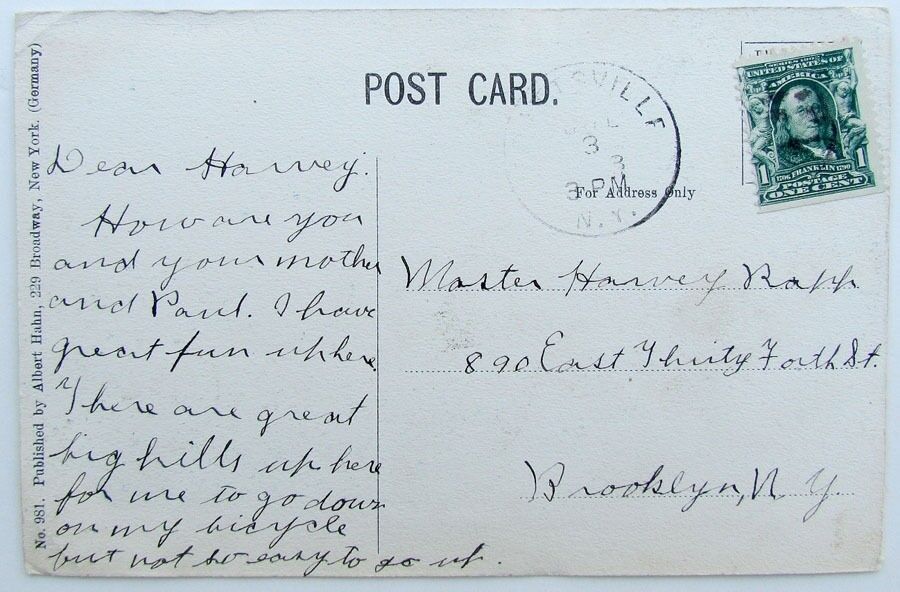 POST CARD.
No. 981. Published by Albert Hahn, 229 Broadway, New York. (Germany)
SVILLE
3
3 PM
N.Y.
For Address Only
SERIES 1902
UNITED STATES OF
AMERICA
1706 FRANKLIN 1790
1 1
POSTAGE
ONE CENT
Dear Harvey.
How are you
and your mother
and Paul. I have
great fun up here
There are great
big hills up here
for me to go down
on my bicycle
but not so easy to go up.
Master Harvey Rapp
890 East Thirty Forth St.
Brooklyn, N. Y.